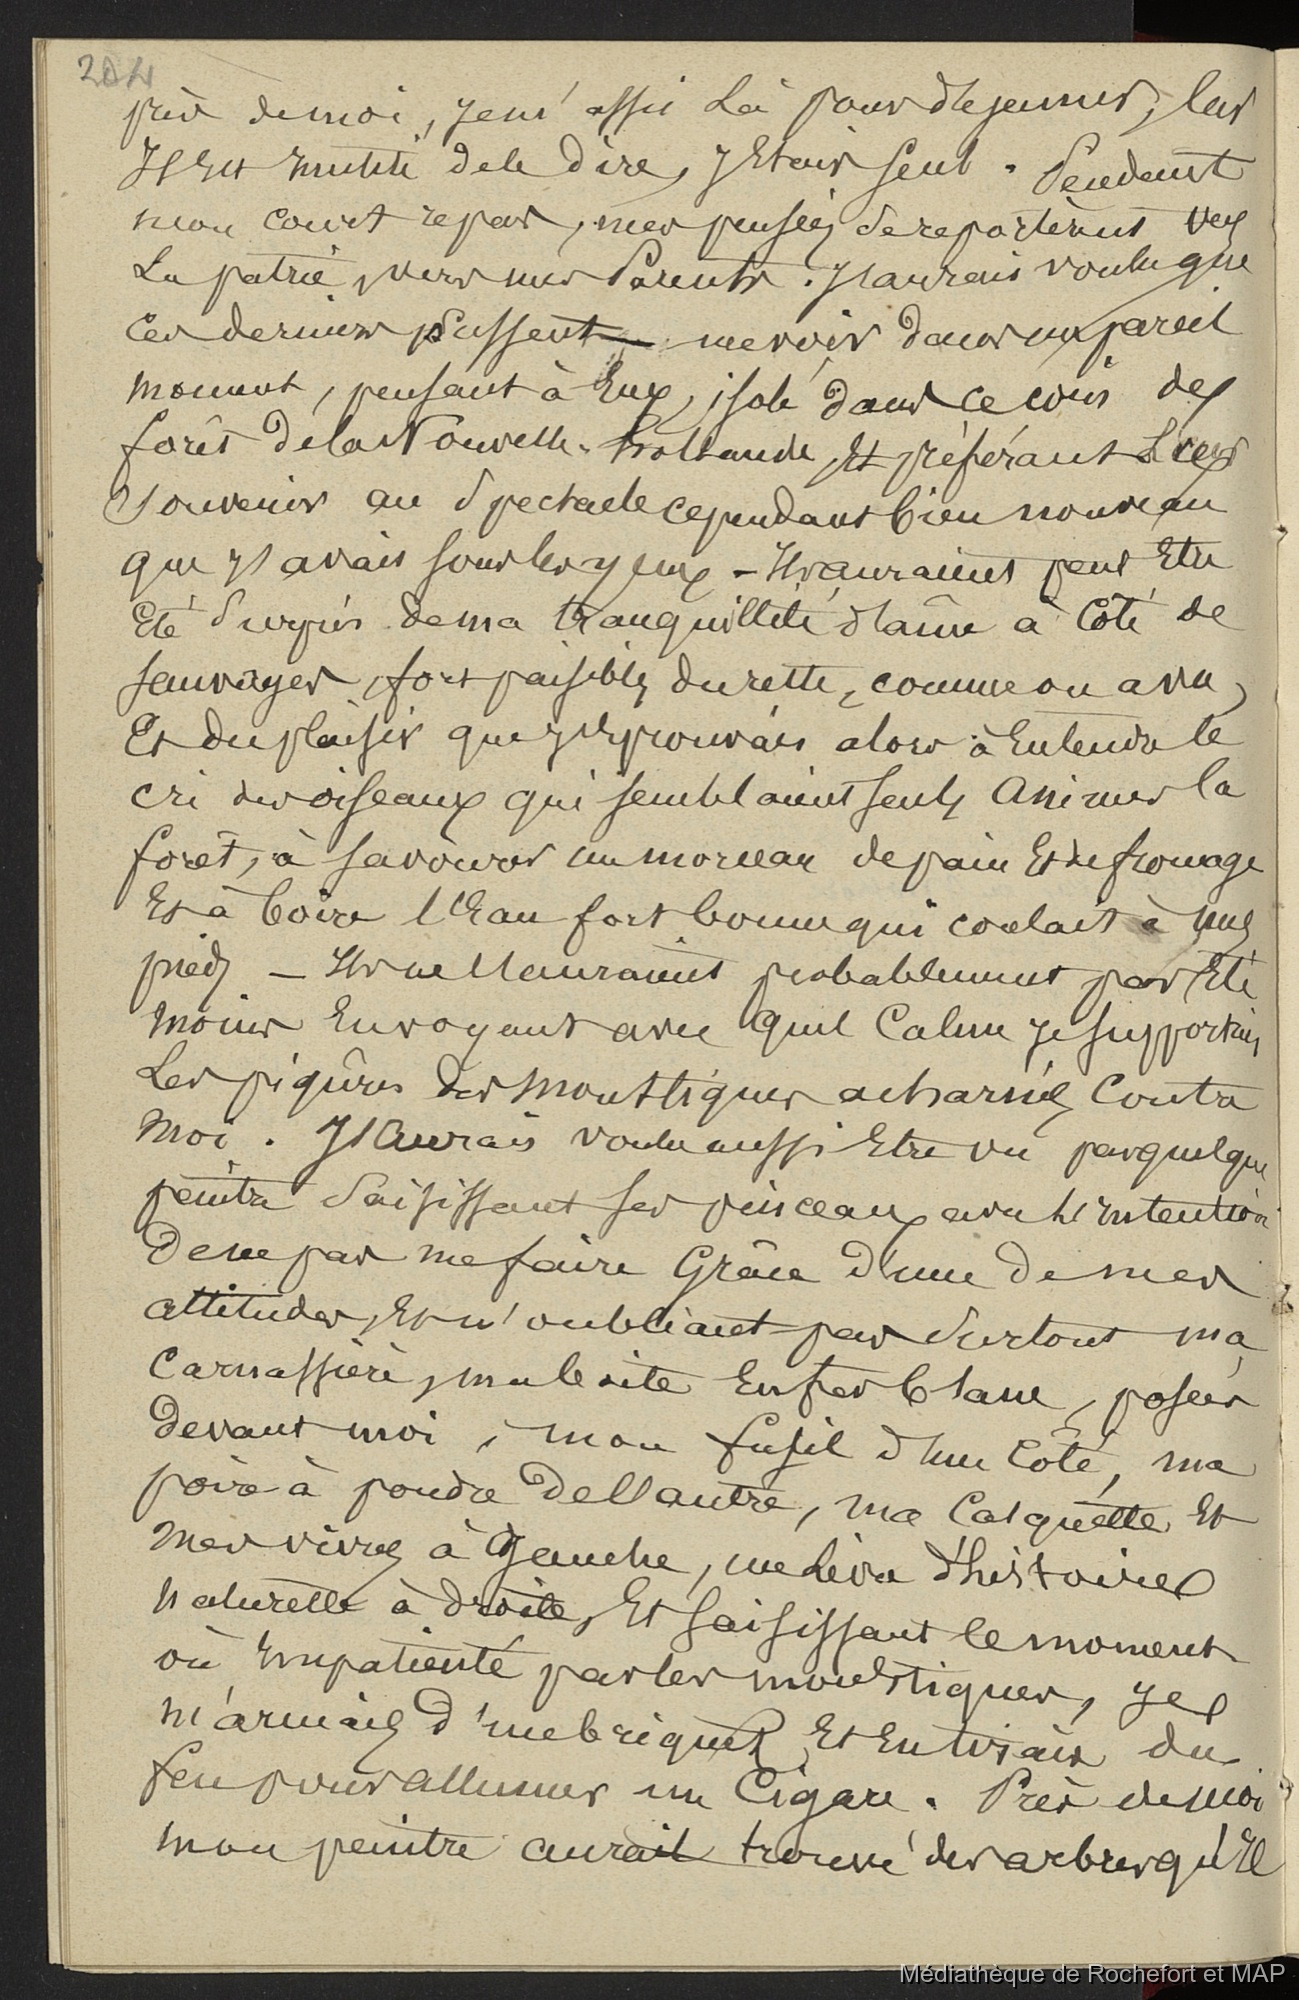 204
près de moi, je m'assis là pour déjeuner, car
Il est inutile de le dire, j'étais seul. Pendant
mon court repas, mes pensées se reportèrent vers
La patrie, vers mes Parents. J'aurais voulu que
Ces derniers pussent me voir dans un pareil
moment, pensant à Eux, isolé dans ce coin des
forêts de la Nouvelle-Hollande, Et préférant Leurs
Souvenirs au Spectacle cependant bien nouveau
que j'avais sous les yeux - Ils auraient peut Etre
Eté Surpris de ma tranquillité d'âme à Côté de
sauvages, fort paisibles du reste, comme on a vu,
Et du plaisir que j'éprouvais alors à Entendre le
cri des oiseaux qui semblaient seuls Animer la
forêt, à savourer un morceau de pain Et de fromage
Et à boire l'Eau fort bonne qui coulait à mes
pieds - Ils ne l'auraient probablement pas Eté
moins En voyant avec quel Calme je supportais
Les piqûres des moustiques acharnés Contre
moi. J'Aurais voulu aussi Etre vu par quelque
peintre Saisissant ses pinceaux avec l'Intention
De ne pas me faire Grâce d'une de mes
attitudes, Et n'oubliant pas Surtout ma
Carnassière, ma boite En fer blanc, posées
Devant moi, mon fusil d'un Côté, ma
poire à poudre De l'autre, ma Casquette Et
mes vivres à Gauche, un Livre d'histoire
naturelle à droite, Et saisissant le moment
où Impatienté par les moustiques, je
m'armais d'un briquet Et En tirais du
feu pour Allumer un Cigare. Près de moi
mon peintre aurait trouvé des arbres qu'Il
Médiathèque de Rochefort et MAP